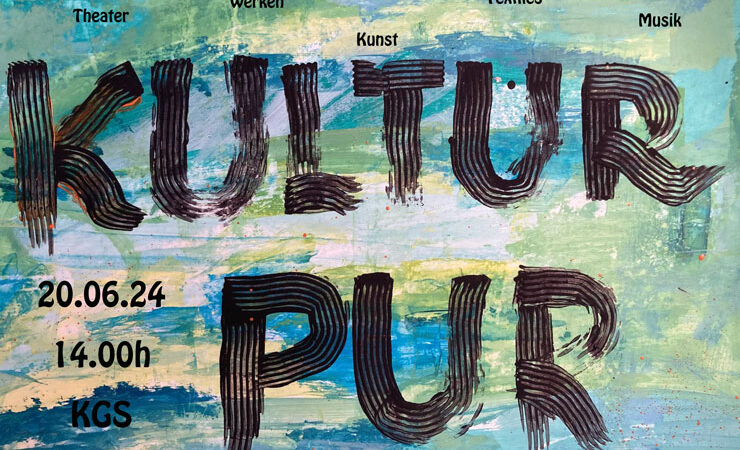 Werken
Textiles
Theater
Musik
Kunst
KULTUR
PUR
20.06.24
14.00h
KGS